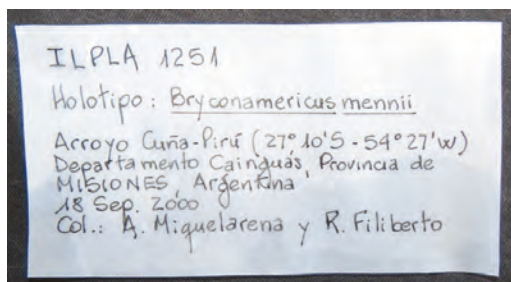 ILPLA 1251
Holotipo: Bryconamericus mennii
Arroyo Cuña-Pirú (27° 10'S - 54° 27'W)
Departamento Cainguás, Provincia de
MISIONES, Argentina
18 Sep. 2000
Col.: A. Miquelarena y R. Filiberto